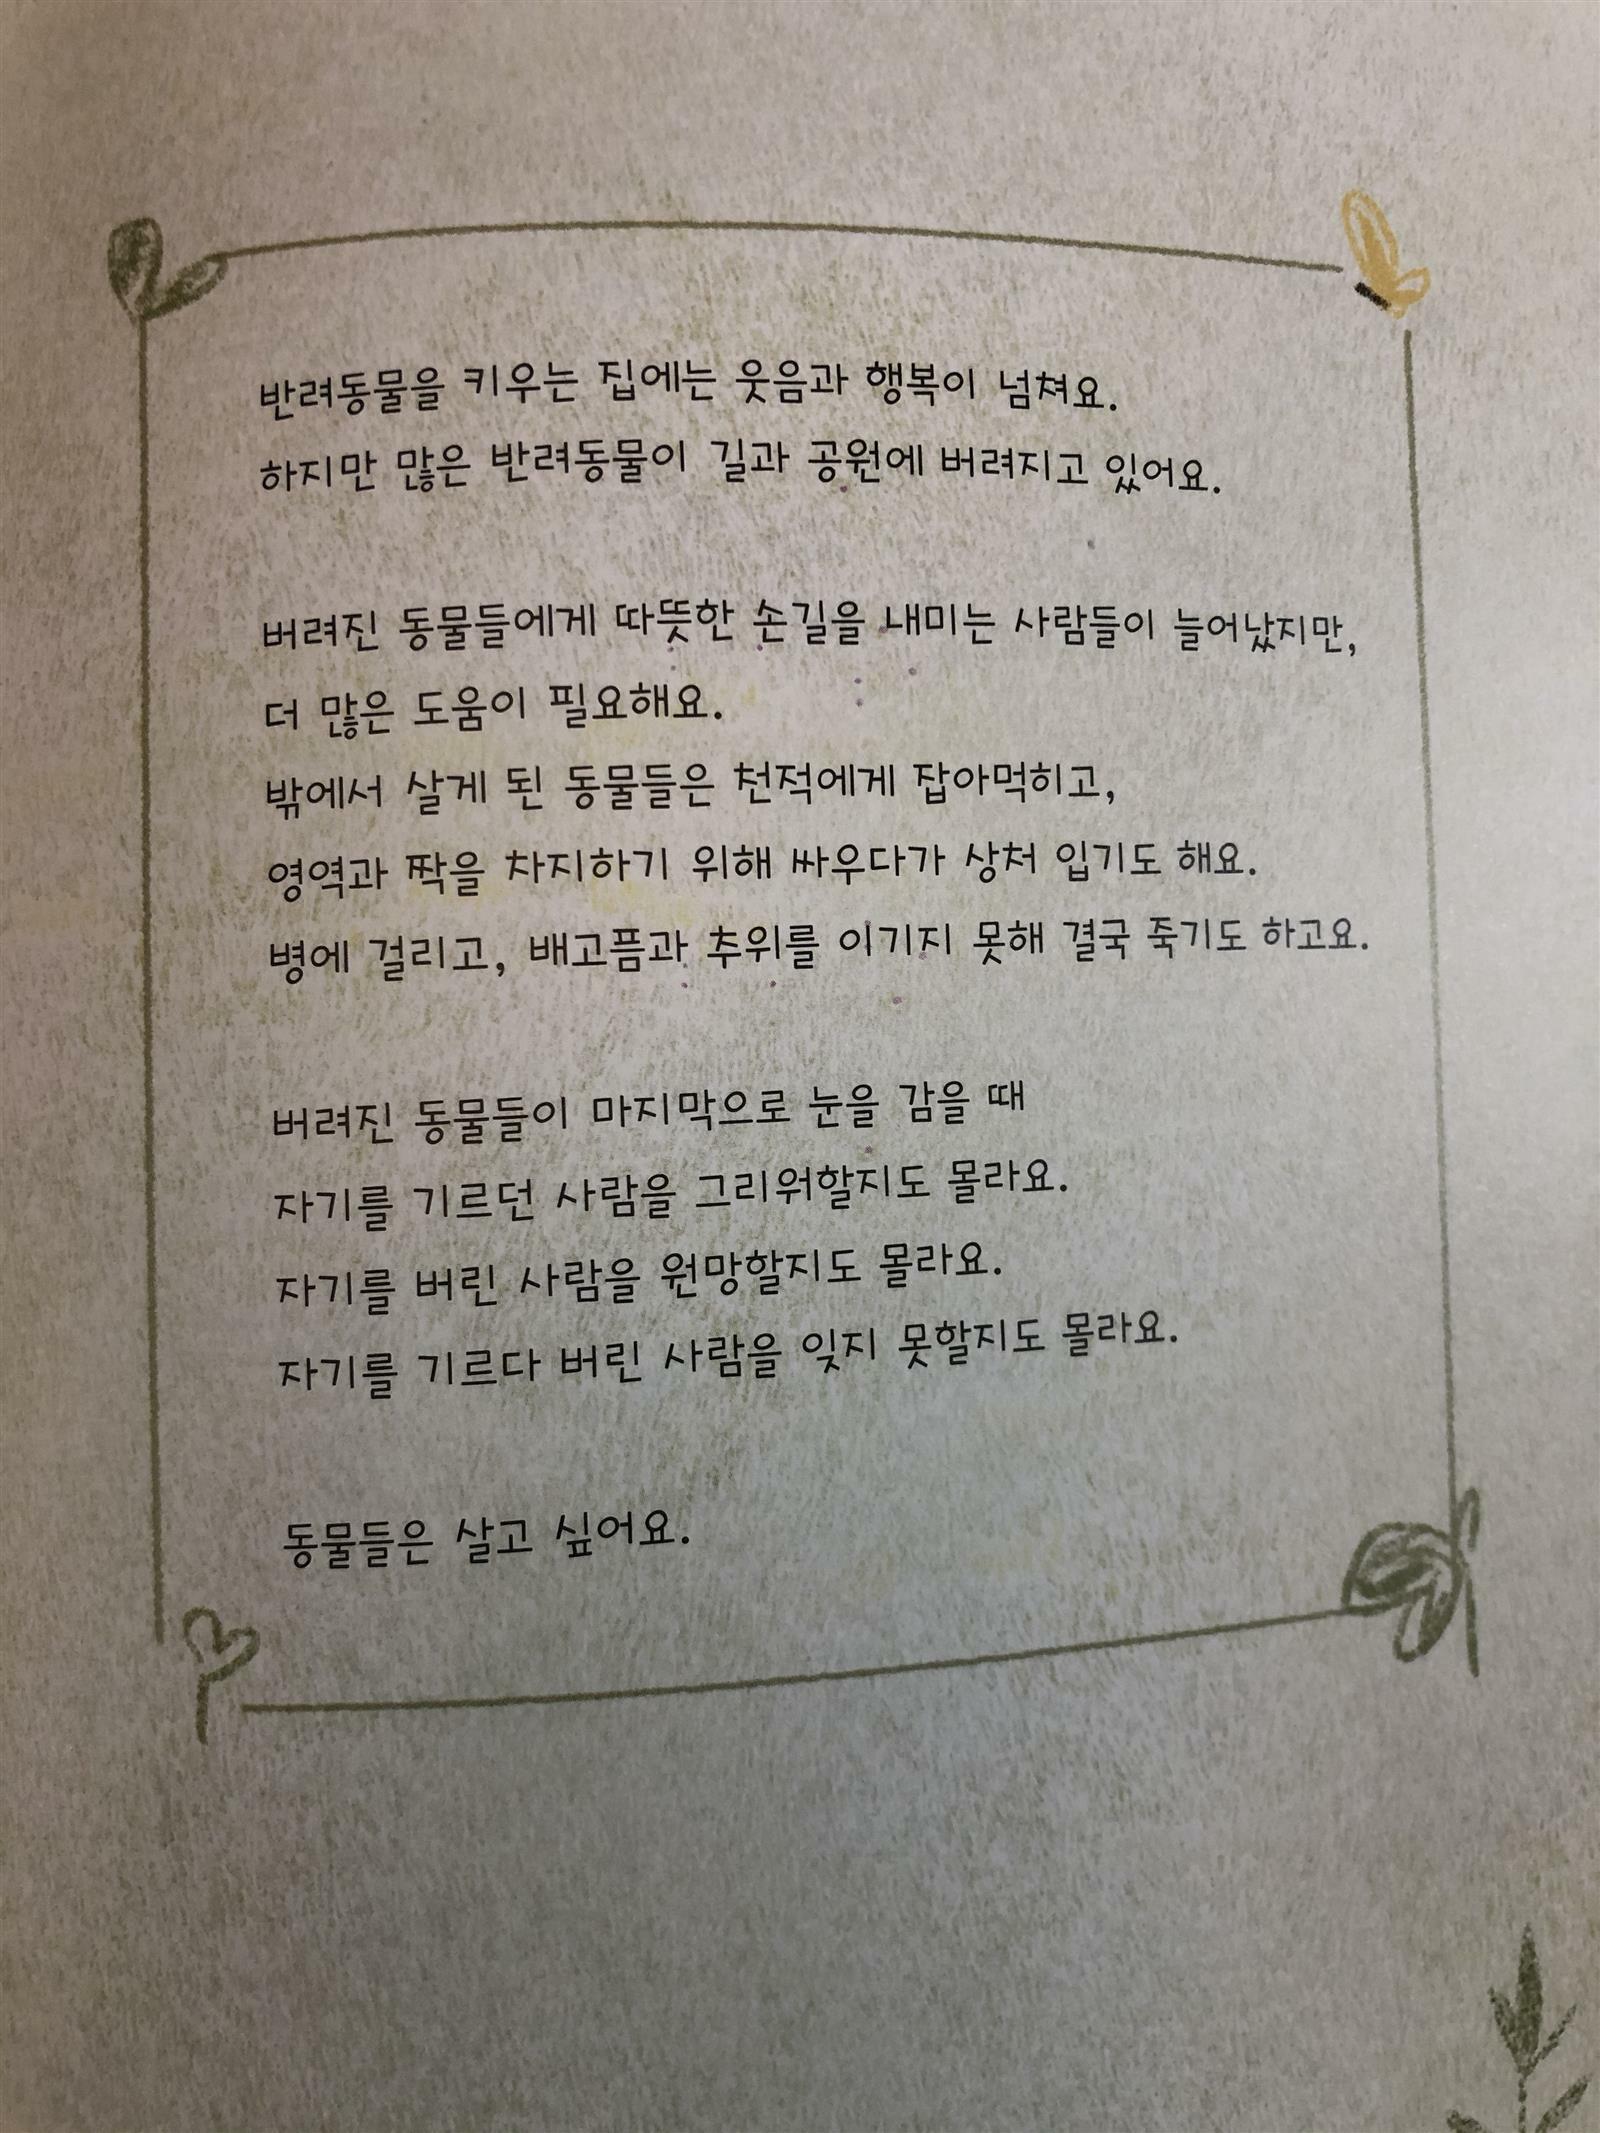 반려동물을 키우는 집에는 웃음과 행복이 넘쳐요.
하지만 많은 반려동물이 길과 공원에 버려지고 있어요.
버려진 동물들에게 따뜻한 손길을 내미는 사람들이 늘어났지만,
더 많은 도움이 필요해요.
밖에서 살게 된 동물들은 천적에게 잡아먹히고,
영역과 짝을 차지하기 위해 싸우다가 상처 입기도 해요.
병에 걸리고, 배고픔과 추위를 이기지 못해 결국 죽기도 하고요.
버려진 동물들이 마지막으로 눈을 감을 때
자기를 기르던 사람을 그리워할지도 몰라요.
자기를 버린 사람을 원망할지도 몰라요.
자기를 기르다 버린 사람을 잊지 못할지도 몰라요.
동물들은 살고 싶어요.